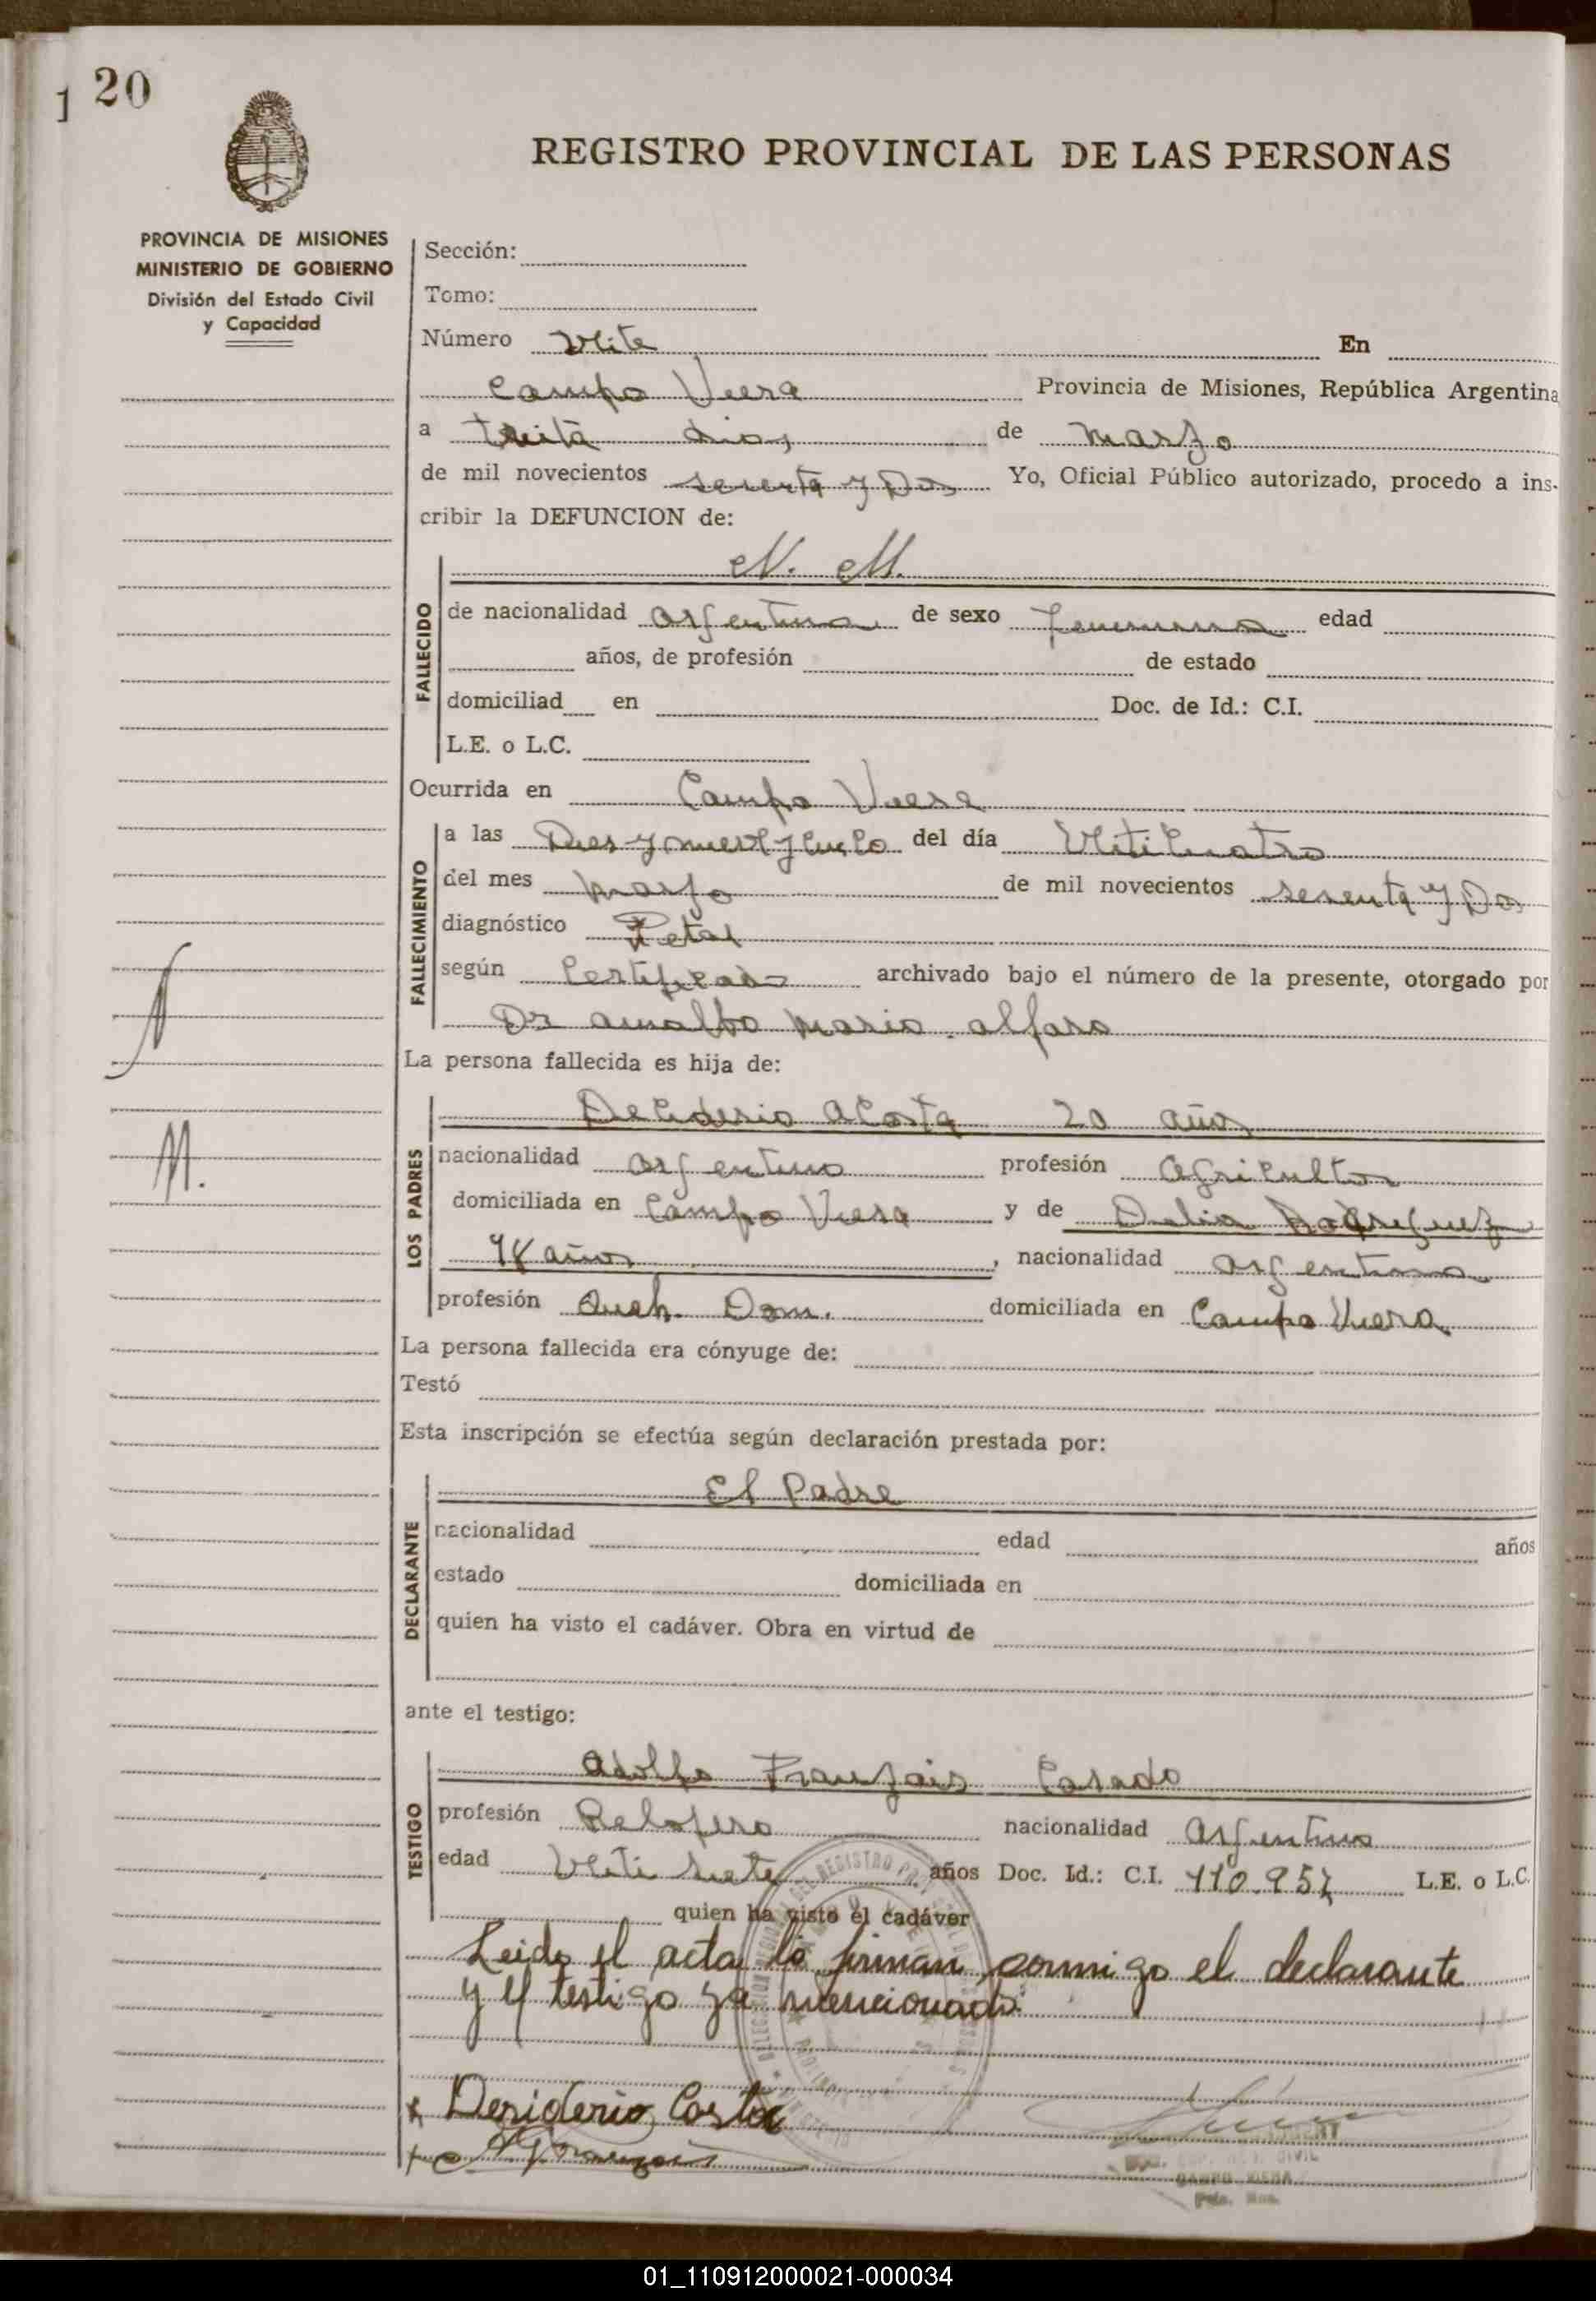 1 20
REGISTRO PROVINCIAL DE LAS PERSONAS
PROVINCIA DE MISIONES
MINISTERIO DE GOBIERNO
División del Estado Civil
y Capacidad
Sección:
Tomo:
Número Veite En
Campo Viera Provincia de Misiones, República Argentina
a treita dias de marzo
de mil novecientos sesenta y Dos Yo, Oficial Público autorizado, procedo a ins-
cribir la DEFUNCION de:
N. M.
FALLECIDO
de nacionalidad argentina de sexo femenino edad
años, de profesión de estado
domiciliad en Doc. de Id.: C.I.
L.E. o L.C.
Ocurrida en Campo Viera
FALLECIMIENTO
a las Dies y nueve y cinco del día Veiticuatro
del mes marzo de mil novecientos sesenta y Dos
diagnóstico Fetal
según Certificado archivado bajo el número de la presente, otorgado por
Dr mario alfaro
La persona fallecida es hija de:
LOS PADRES
Deciderio acosta 20 años
nacionalidad argentino profesión agricultor
domiciliada en Campo Viera y de Delia Rodriguez
18 años, nacionalidad argentina
profesión Queh. Dom. domiciliada en Campo Viera
La persona fallecida era cónyuge de:
Testó
Esta inscripción se efectúa según declaración prestada por:
DECLARANTE
El Padre
nacionalidad edad años
estado domiciliada en
quien ha visto el cadáver. Obra en virtud de
ante el testigo:
TESTIGO
adolfo Franzois Casado
profesión Relojero nacionalidad argentino
edad Veiti siete años Doc. Id.: C.I. 110.957 L.E. o L.C.
quien ha visto el cadáver
Leido el acta lo firman conmigo el declarante
y el testigo ya mencionado.
N
M.
x Desiderio Costa
CAMPO VIERA
01_110912000021-000034